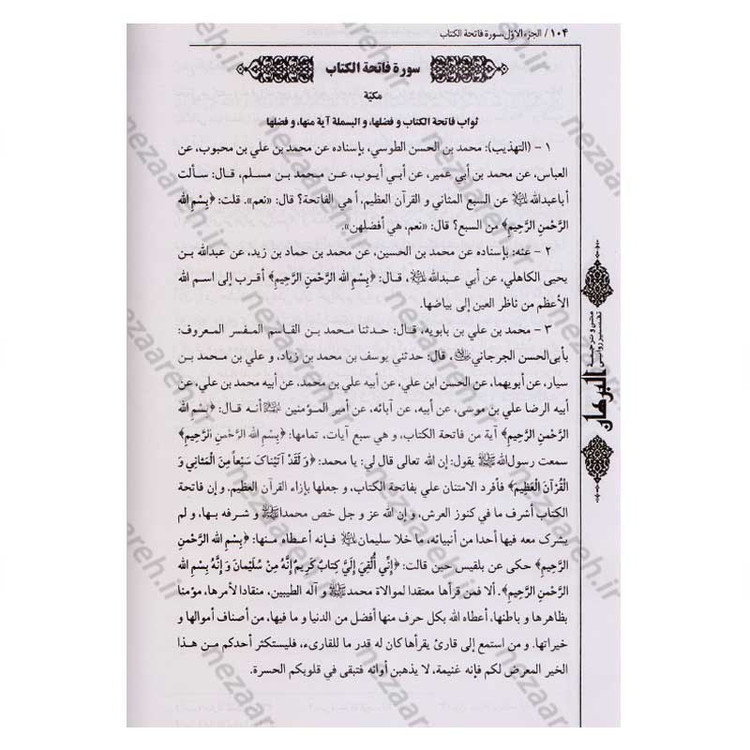 ١٠۴ / الجزء الاوّل، سورة فاتحة الكتاب
سورة فاتحة الكتاب
مكيّة
ثواب فاتحة الكتاب و فضلها، و البسملة آية منها، و فضلها
١ - (التهذيب): محمد بن الحسن الطوسي، بإسناده عن محمد بن علي بن محبوب، عن
العباس، عن محمد بن أبي عمير، عن أبي أيوب، عن محمد بن مسلم، قال: سألت
أباعبدالله ﷺ عن السبع المثاني و القرآن العظيم، أ هي الفاتحة؟ قال: «نعم». قلت: ﴿بِسْمِ اللهِ
الرَّحْمنِ الرَّحِيمِ﴾ من السبع؟ قال: «نعم، هي أفضلهن».
٢ - عنه: بإسناده عن محمد بن الحسين، عن محمد بن حماد بن زيد، عن عبدالله بن
يحيى الكاهلي، عن أبي عبدالله، قال: ﴿بِسْمِ اللهِ الرَّحْمنِ الرَّحِيمِ﴾ أقرب إلى اسم الله
الأعظم من ناظر العين إلى بياضها.
٣ - محمد بن علي بن بابويه، قال: حدثنا محمد بن القاسم المفسر المعروف:
بأبي‌الحسن الجرجاني، قال: حدثني يوسف بن محمد بن زياد، و علي بن محمد بن
سيار، عن أبويهما، عن الحسن ابن علي، عن أبيه علي بن محمد، عن أبيه محمد بن علي، عن
أبيه الرضا علي بن موسى، عن أبيه، عن آبائه، عن أمير المؤمنين أنه قال: ﴿بِسْمِ اللهِ
الرَّحْمنِ الرَّحِيمِ﴾ آية من فاتحة الكتاب، و هي سبع آيات، تمامها: ﴿بِسْمِ اللهِ الرَّحْمنِ الرَّحِيمِ﴾
سمعت رسول‌الله ﷺ يقول: إن الله تعالى قال لي: يا محمد: ﴿وَ لَقَدْ آتَيْنَاكَ سَبْعاً مِنَ الْمَثَانِي وَ
الْقُرْآنَ الْعَظِيمَ﴾ فأفرد الامتنان علي بفاتحة الكتاب، و جعلها بإزاء القرآن العظيم. و إن فاتحة
الكتاب أشرف ما في كنوز العرش، و إن الله عز و جل خص محمدا ﷺ و شرفه بها، و لم
يشرك معه فيها أحدا من أنبيائه، ما خلا سليمان فإنه أعطاه منها: ﴿بِسْمِ اللهِ الرَّحْمنِ
الرَّحِيمِ﴾ حكى عن بلقيس حين قالت: ﴿إِنِّي أُلْقِيَ إِلَيَّ كِتَابٌ كَرِيمٌ إِنَّهُ مِنْ سُلَيْمَانَ وَ إِنَّهُ بِسْمِ اللهِ
الرَّحْمنِ الرَّحِيمِ﴾. ألا فمن قرأها معتقدا لموالاة محمد ﷺ و آله الطيبين، منقادا لأمرها، مؤمنا
بظاهرها و باطنها، أعطاه الله بكل حرف منها أفضل من الدنيا و ما فيها، من أصناف أموالها و
خيراتها. و من استمع إلى قارئ يقرأها كان له قدر ما للقارىء، فليستكثر أحدكم من هذا
الخير المعرض لكم فإنه غنيمة، لا يذهبن أوانه فتبقى في قلوبكم الحسرة.
متن و ترجمه
تفسير روايي
البرهان
nezaareh.ir